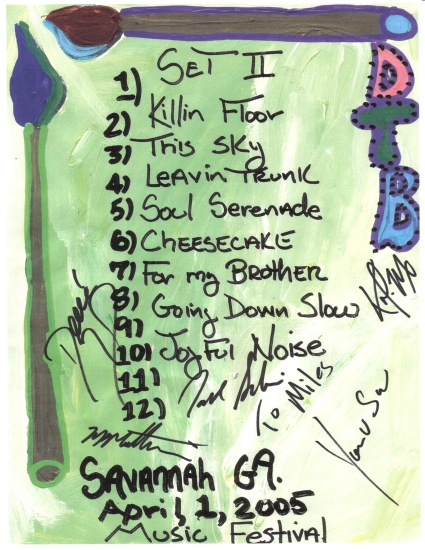 SET II
1)
2) Killin Floor
3) This Sky
4) Leavin Trunk
5) Soul Serenade
6) CHEESECAKE
7) For my BROTHER
8) Going Down Slow
9)
10) Joyful Noise
11)
12)
DTB
To Miles
SAVANNAH GA.
April, 1, 2005
Music Festival